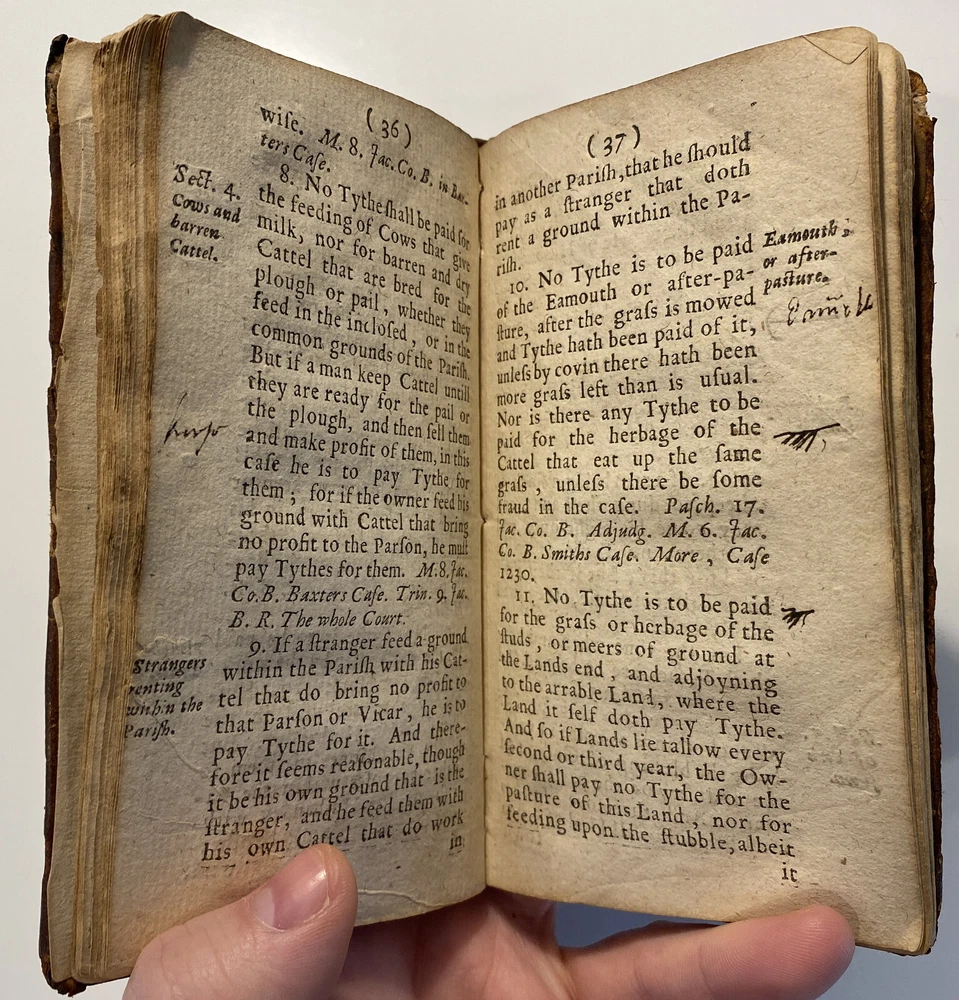 (36)
wiſe. M. 8. Jac. Co. B. in Bax-
ters Caſe.
Sect. 4.
Cows and
barren
Cattel.
8. No Tythe ſhall be paid for
the feeding of Cows that give
milk, nor for barren and dry
Cattel that are bred for the
plough or pail, whether they
feed in the incloſed, or in the
common grounds of the Pariſh.
But if a man keep Cattel untill
they are ready for the pail or
the plough, and then ſell them
and make profit of them, in this
caſe he is to pay Tythe for
them; for if the owner feed his
ground with Cattel that bring
no profit to the Parſon, he muſt
pay Tythes for them. M. 8. Jac.
Co. B. Baxters Caſe. Trin. 9. Jac.
B. R. The whole Court.
Strangers
renting
within the
Pariſh.
9. If a ſtranger feed a ground
within the Pariſh with his Cat-
tel that do bring no profit to
that Parſon or Vicar, he is to
pay Tythe for it. And there-
fore it ſeems reaſonable, though
it be his own ground that is the
ſtranger, and he feed them with
his own Cattel that do work
in
(37)
in another Pariſh, that he ſhould
pay as a ſtranger that doth
rent a ground within the Pa-
riſh.
10. No Tythe is to be paid
of the Eamouth or after-pa-
ſture, after the graſs is mowed
and Tythe hath been paid of it,
unleſs by covin there hath been
more graſs left than is uſual.
Nor is there any Tythe to be
paid for the herbage of the
Cattel that eat up the ſame
graſs, unleſs there be ſome
fraud in the caſe. Paſch. 17.
Jac. Co. B. Adjudg. M. 6. Jac.
Co. B. Smiths Caſe. More, Caſe
1230.
Eamouth
or after-
paſture.
11. No Tythe is to be paid
for the graſs or herbage of the
ſtuds, or meers of ground at
the Lands end, and adjoyning
to the arrable Land, where the
Land it ſelf doth pay Tythe.
And ſo if Lands lie fallow every
ſecond or third year, the Ow-
ner ſhall pay no Tythe for the
paſture of this Land, nor for
feeding upon the ſtubble, albeit
it